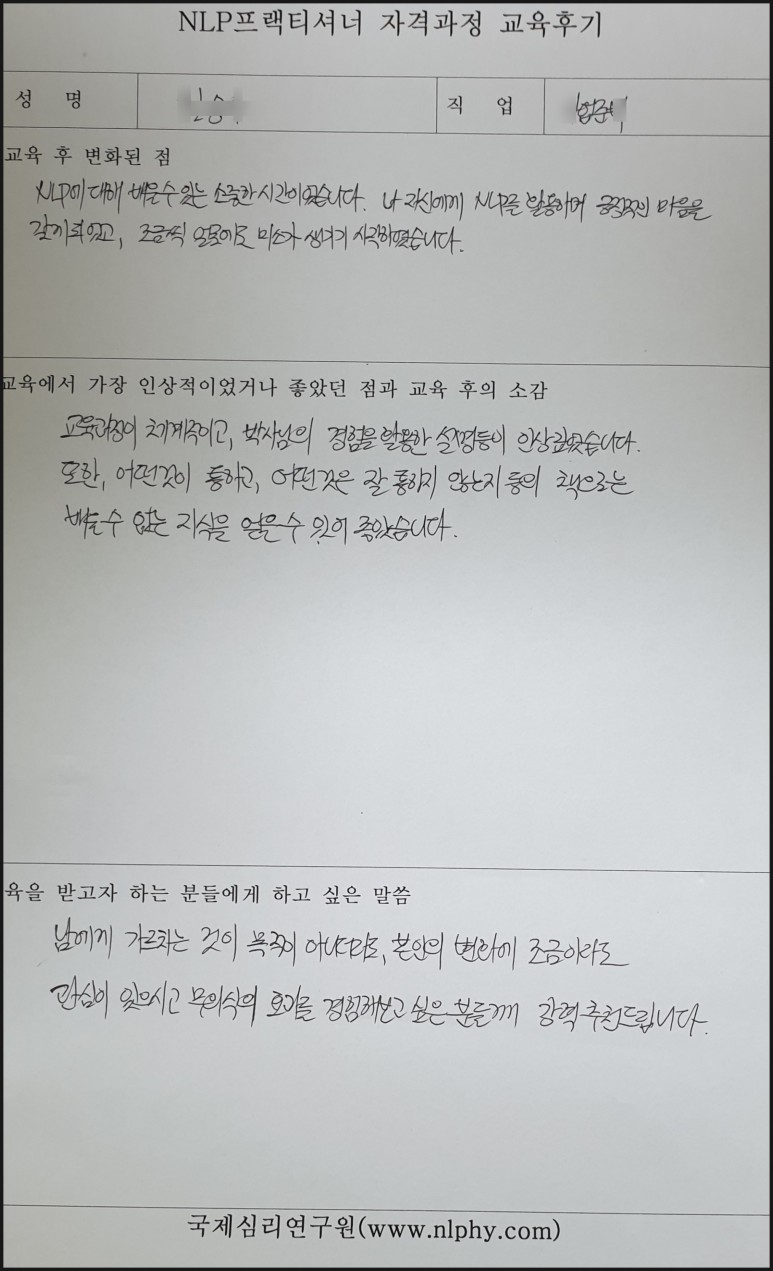 NLP프랙티셔너 자격과정 교육후기
성 명 직 업
교육 후 변화된 점
NLP에 대해 배울 수 있는 소중한 시간이었습니다. 나 자신에게 NLP를 활용하며 긍정적인 마음을
갖게 되었고, 조금씩 얼굴에도 미소가 생기기 시작하였습니다.
교육에서 가장 인상적이었거나 좋았던 점과 교육 후의 소감
교육과정이 체계적이고, 박사님의 경험을 활용한 설명등이 인상깊었습니다.
또한, 어떤것이 통하고, 어떤것은 잘 통하지 않는지 등의 책으로는
배울 수 없는 지식을 얻을 수 있어 좋았습니다.
육을 받고자 하는 분들에게 하고 싶은 말씀
남에게 가르치는 것이 목적이 아니더라도, 본인의 변화에 조금이라도
관심이 있으시고 무의식의 효과를 경험해보고 싶은 분들께 강력 추천드립니다.
국제심리연구원(www.nlphy.com)